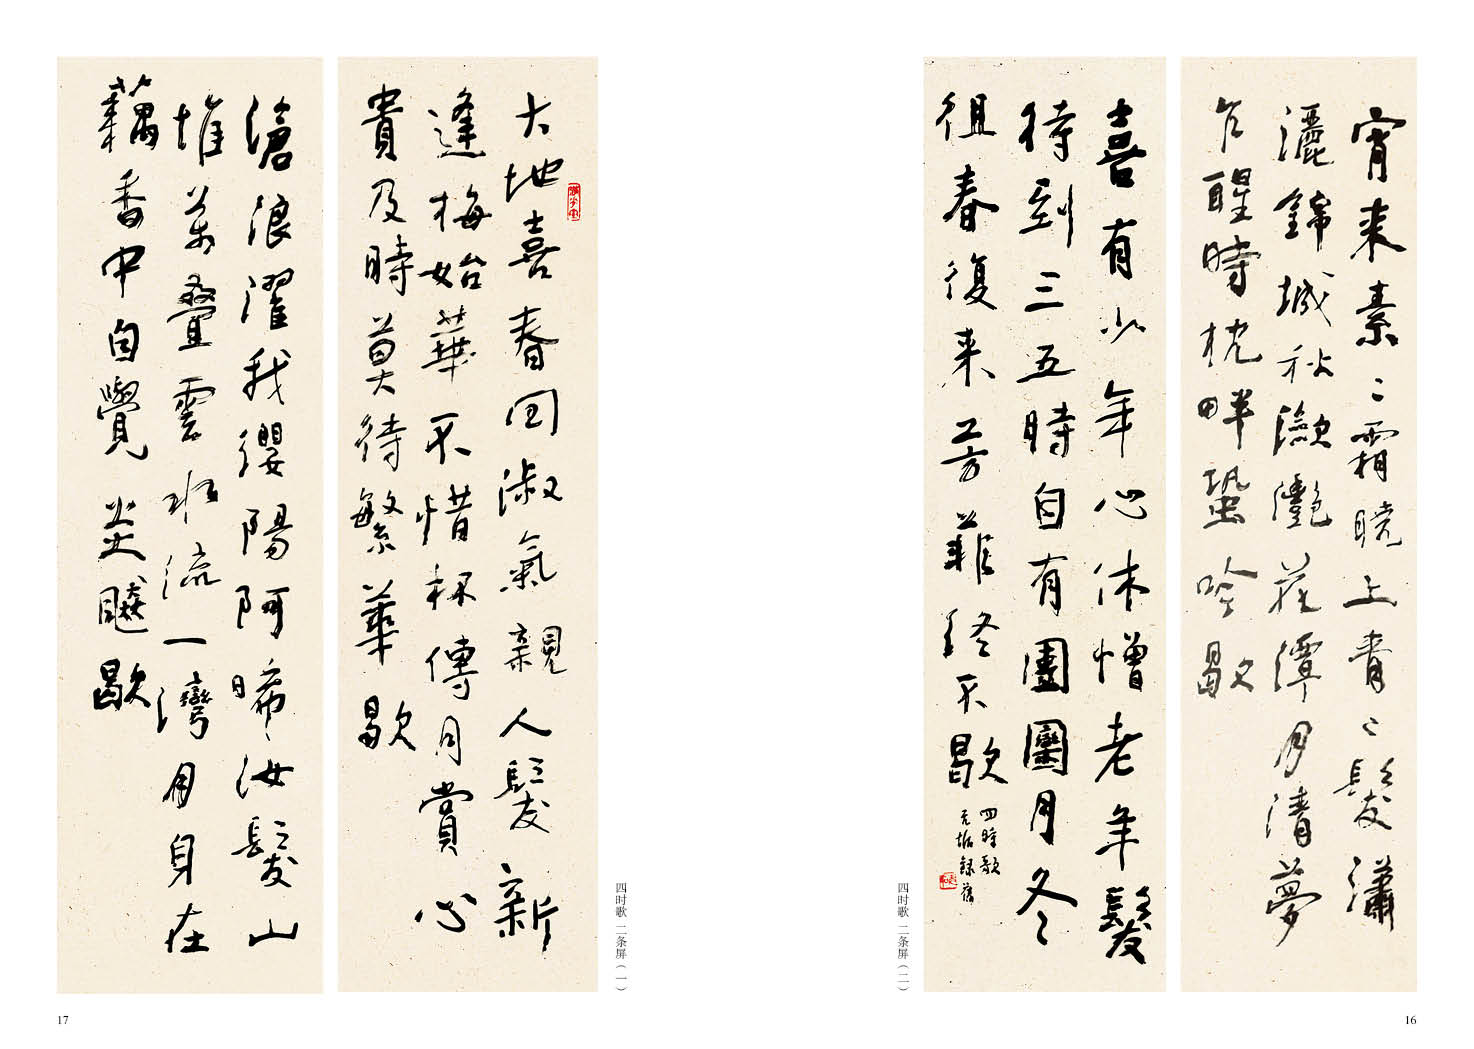 宵来素〻霜曉上青〻髮瀟
灑錦城秋瀲灩花潭月清夢
乍醒時枕畔蛩吟歇
喜有少年心休憎老年髮
待到三五時自有團圞月冬
徂春復来芳菲終不歇
四時歌
四时歌 二条屏（二）
16
大地喜春回淑氣親人髮新
逢梅始華不惜杯傳月賞心
貴及時莫待繁華歇
滄浪濯我纓陽阿晞汝髮山
堆萬疊雲水流一灣月身在
藕香中自覺炎飈歇
四时歌 二条屏（一）
17